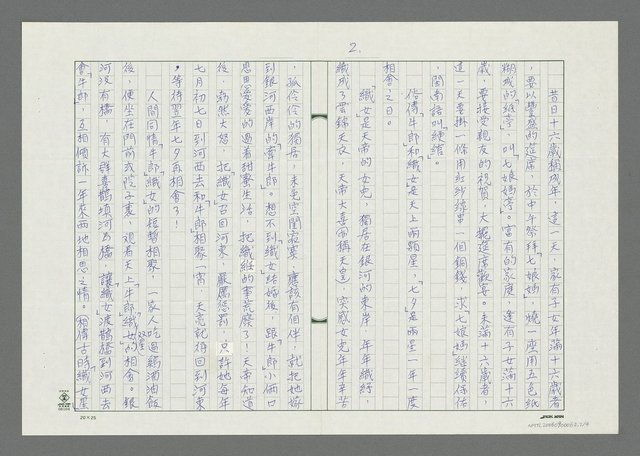 2.
昔日十六歲稱成年,這一天,家有子女年滿十六歲者
,要以豐盛的造席,於中午祭拜「七娘媽」,燒一座用五色紙
糊成的紙亭,叫「七娘媽亭」。富有的家庭,逢有子女滿十六
歲,要接受親友的祝賀,大擺造席歡宴,未滿十六歲者,
這一天要掛一條用紅紗線串一個銅錢,求「七娘媽」繼續保佑
,閩南語叫
俗傳「牛郎」和「織女」是天上兩顆星,「七夕」是兩星一年一度
相會之日。
「織女」是天帝的女兒,獨居在銀河的東岸,年年織紓,
織成了雲錦天衣,天帝大喜(即稱天皇)突感女兒年年辛苦
,孤伶伶的獨居,未免空閨寂寞,應該有個伴,就把她嫁
到銀河西岸的「牽牛郎」。想不到「織女」結婚後,跟「牛郎」小倆口
恩恩愛愛的過着甜蜜生活,把織紝的事荒廢了!天帝知道
後,勃然大怒,把「織女」召回河東,嚴厲懲罰,只許她每年
七月初七日到河西去和「牛郎」相聚一宵,天亮就得回到河東
,等待翌年七夕再相會了!
人間同情「牛郎」「織女」的短暫相聚,一家人吃過雞酒油飯
後,便坐在門前或院子裏,觀看天上「牛郎」「織女」雙星的相會。銀
河沒有橋,有大群喜鵲填河為橋,讓「織女」渡鵲橋到河西去
會「牛郎」,互相傾訴一年來兩地相思之情。相傳古時「織女星」
20×25